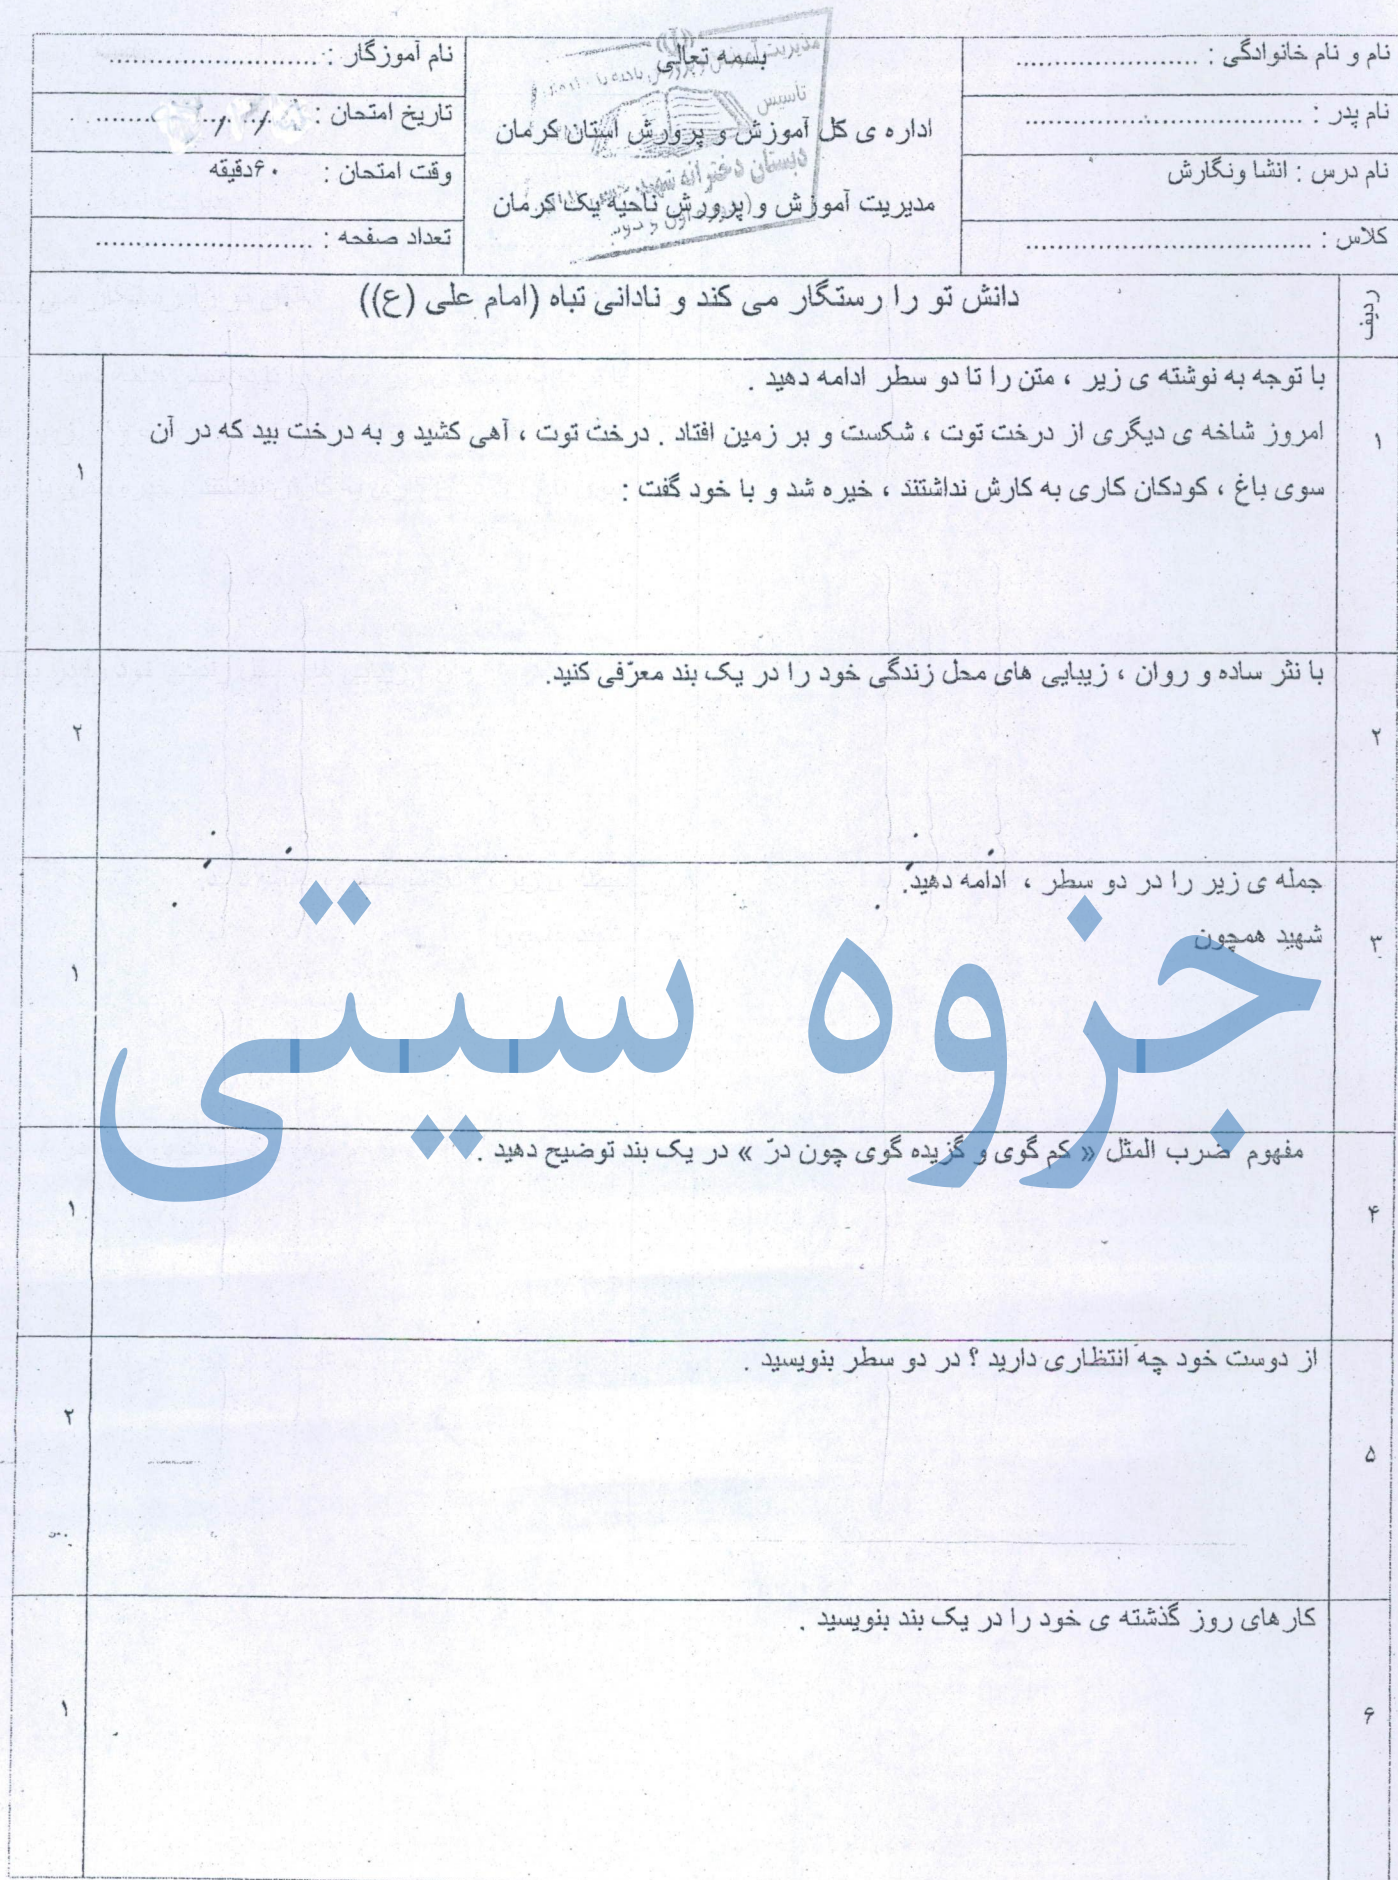 نام و نام خانوادگی : ......................
نام پدر : ..................................
نام درس : انشا ونگارش
کلاس : ...................................
بسمه تعالی
اداره ی کل آموزش و پرورش استان کرمان
مدیریت آموزش و پرورش ناحیه یک کرمان
تاسیس
دبستان دخترانه شهید
نام آموزگار : ..........................
تاریخ امتحان :
وقت امتحان : ۶۰دقیقه
تعداد صفحه : ...........................
ردیف
دانش تو را رستگار می کند و نادانی تباه (امام علی (ع))
۱
با توجه به نوشته ی زیر ، متن را تا دو سطر ادامه دهید .
امروز شاخه ی دیگری از درخت توت ، شکست و بر زمین افتاد . درخت توت ، آهی کشید و به درخت بید که در آن
سوی باغ ، کودکان کاری به کارش نداشتند ، خیره شد و با خود گفت :
۱
۲
با نثر ساده و روان ، زیبایی های محل زندگی خود را در یک بند معرّفی کنید.
۲
۳
جمله ی زیر را در دو سطر ، ادامه دهید.
شهید همچون
۱
جزوه سیتی
۴
مفهوم ضرب المثل « کم گوی و گزیده گوی چون درّ » در یک بند توضیح دهید .
۱
۵
از دوست خود چه انتظاری دارید ؟ در دو سطر بنویسید .
۲
۶
کارهای روز گذشته ی خود را در یک بند بنویسید .
۱